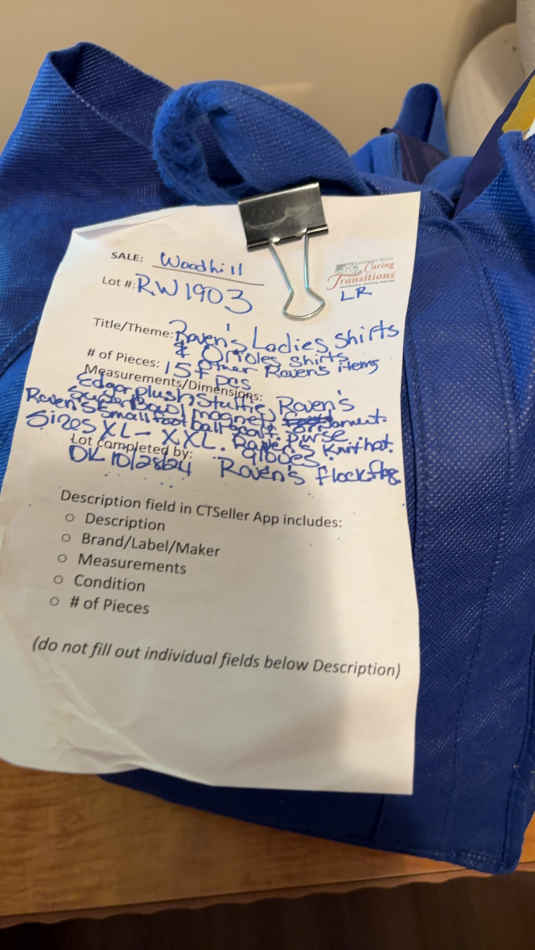 SALE: Woodhill
Caring
Transitions
Lot #: RW1903
LR
Title/Theme: Raven's Ladies shirts
& Orioles shirts
& other Raven's items
# of Pieces: 15+ pcs
Measurements/Dimensions:
Edgar plush stuffie, Raven's
superbowl magnet, ornament.
Raven's small football, purse
Sizes XL - XXL. Raven's Knit hat.
gloves.
Lot completed by:
DK 10/28/24 Raven's flag
Description field in CTSeller App includes:
○ Description
○ Brand/Label/Maker
○ Measurements
○ Condition
○ # of Pieces
(do not fill out individual fields below Description)